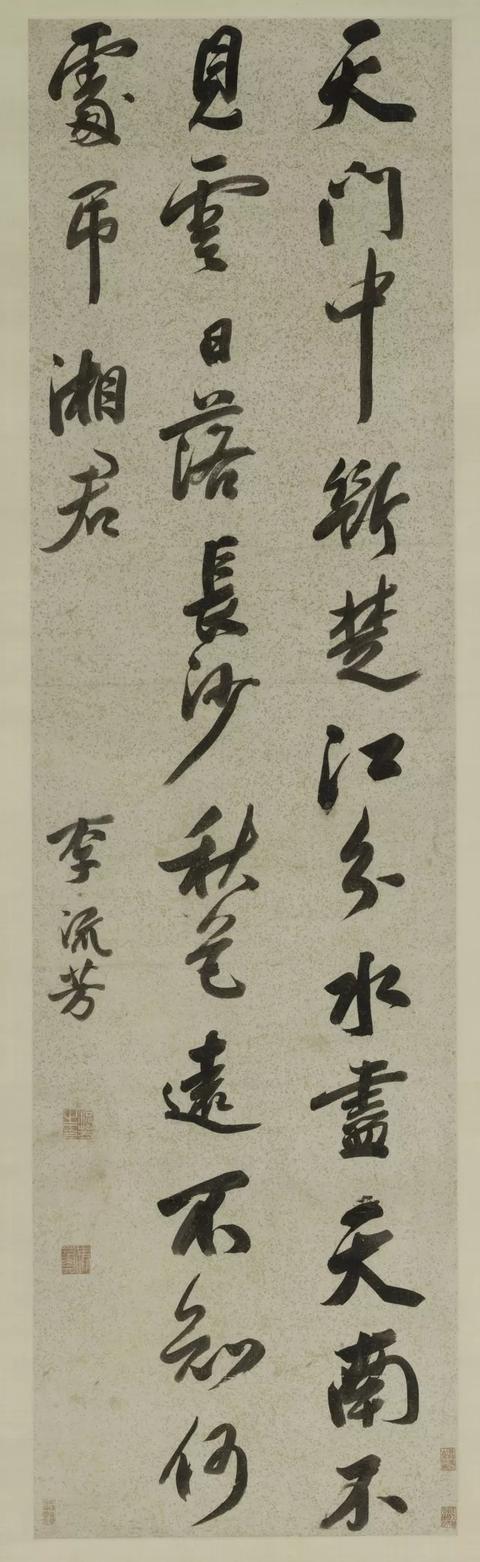 天門中斷楚江分水盡天南不
見雲日落長沙秋色遠不知何
處吊湘君
李流芳